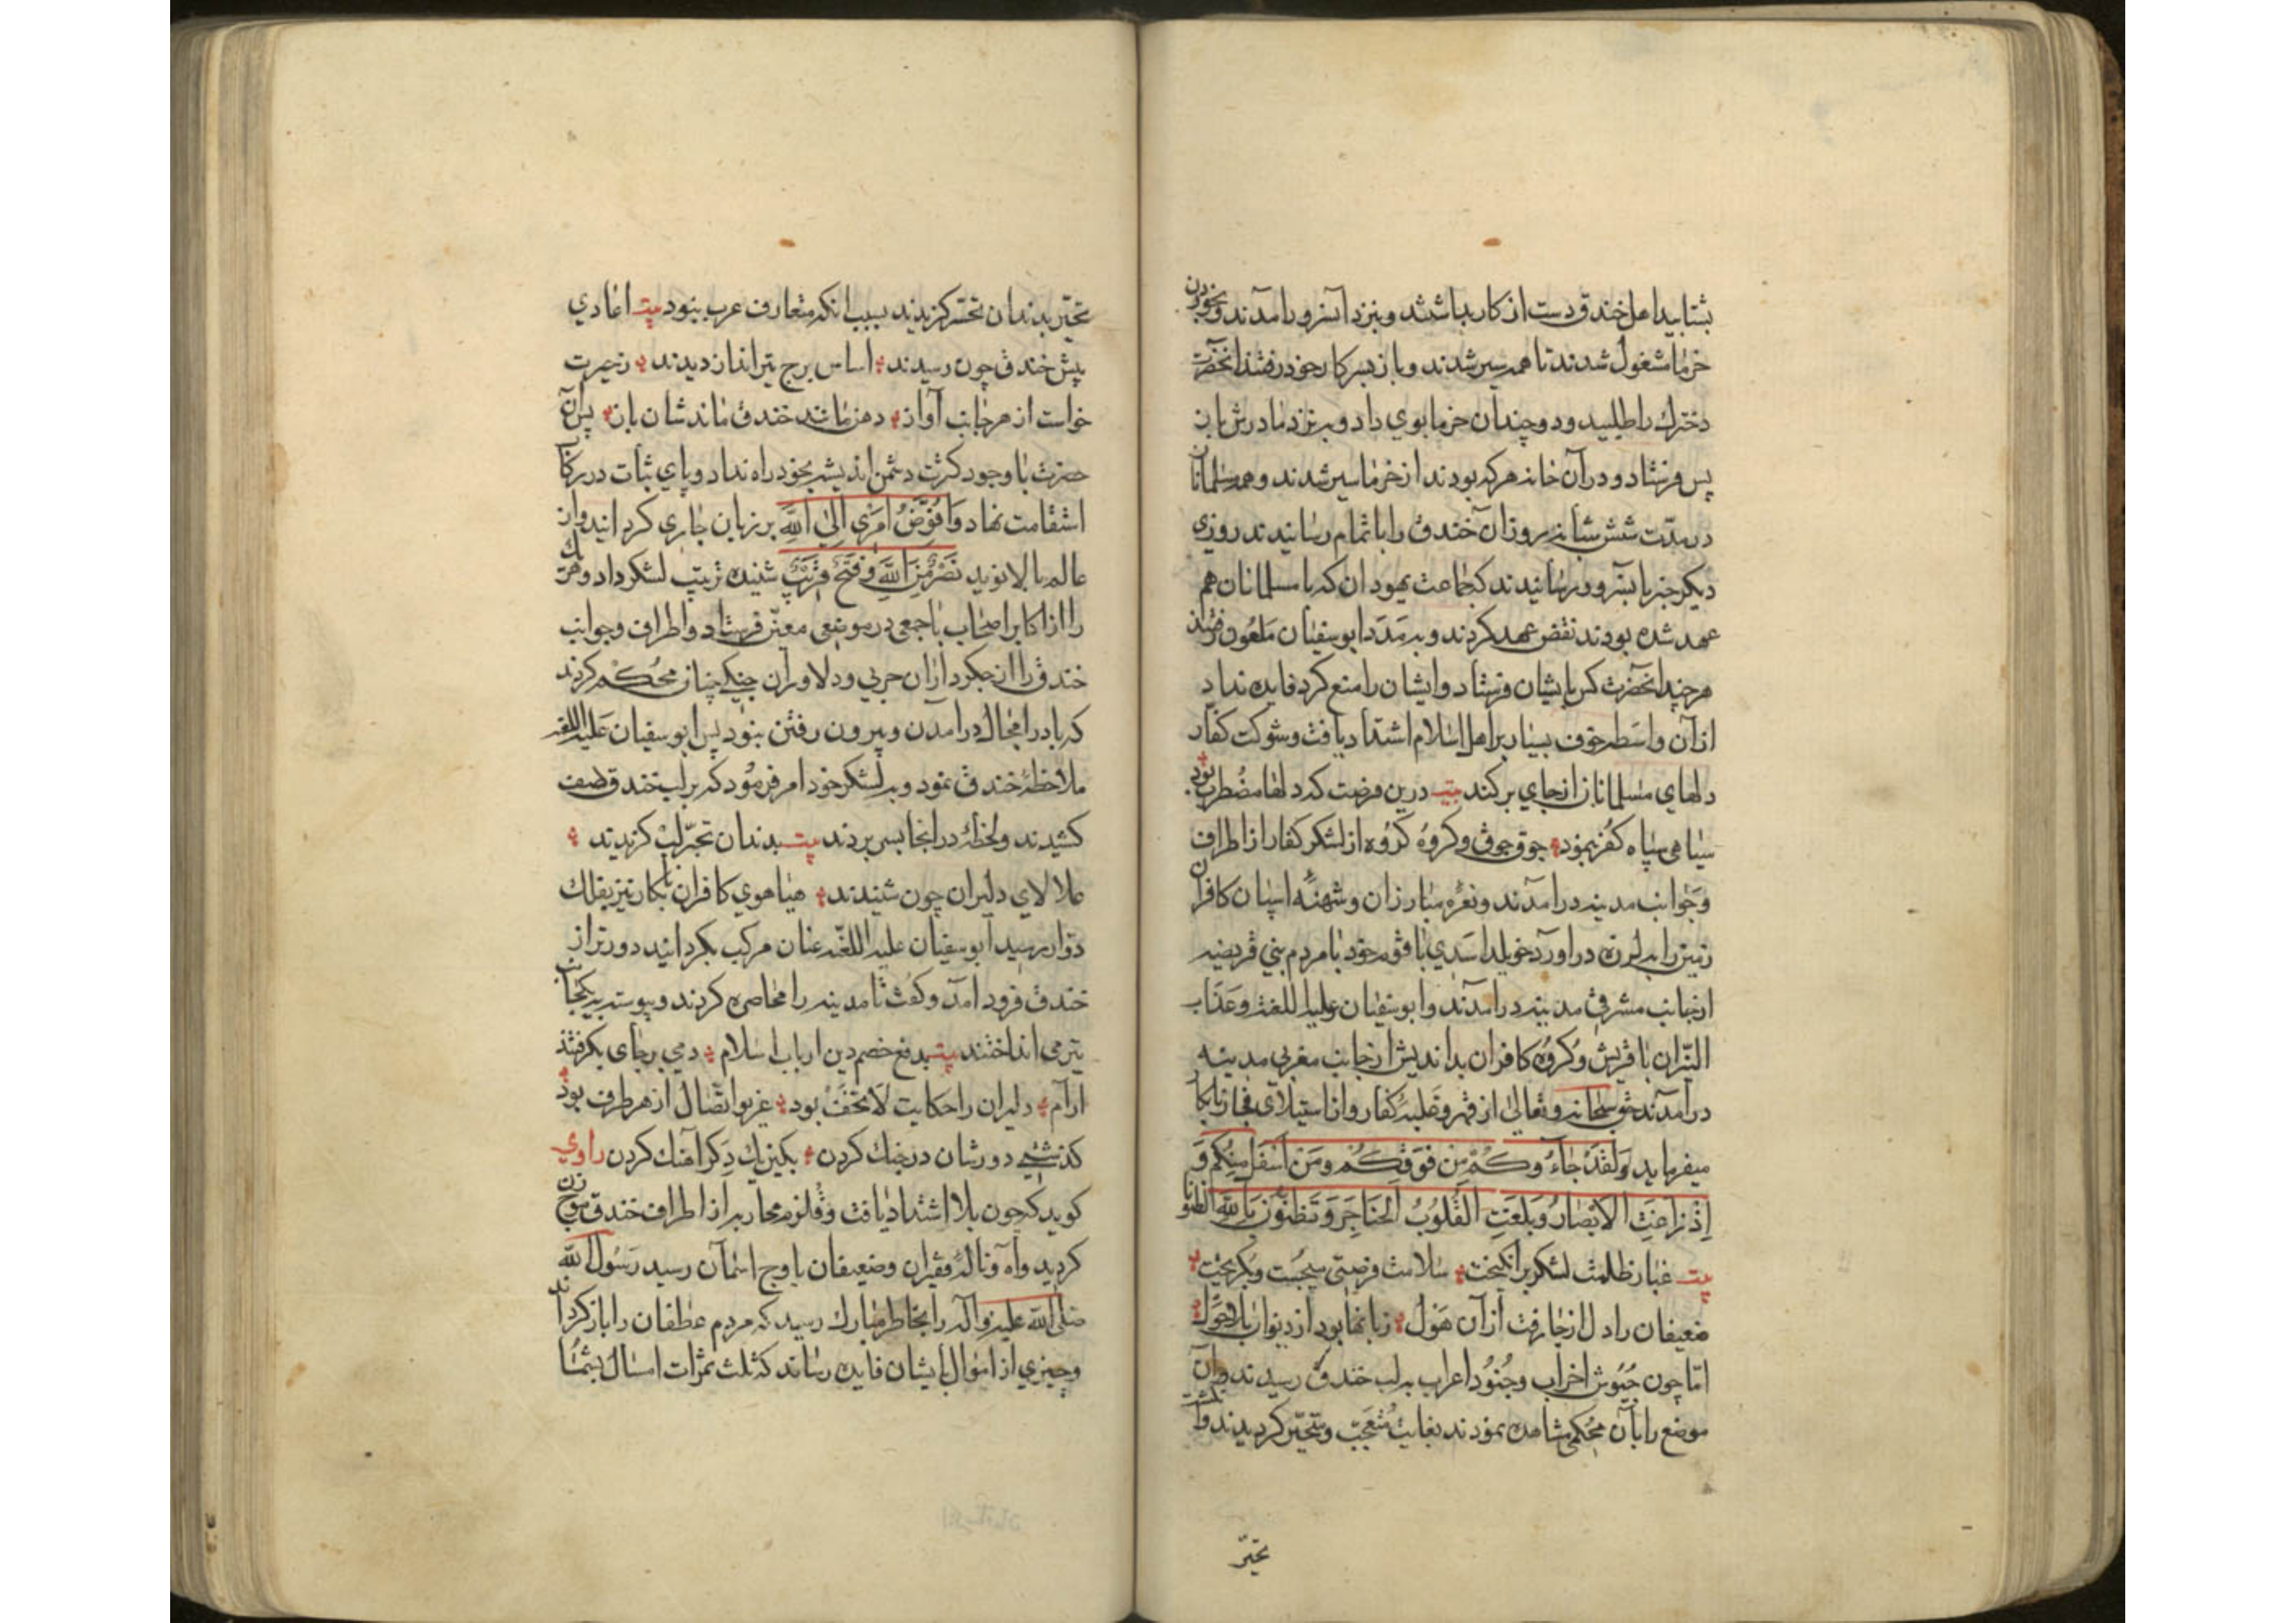 بشتابید اهل خندق دست از کار بداشتند و بنزد آنسرور آمدند و بخوردن
خرما مشغول شدند تا همه سیر شدند و باز بسر کار خود رفتند آنحضرت
دخترک را طلبید و دو چندان خرما بوی داد و بنزد مادرش باز
پس فرستاد و در آن خانه هر که بودند از خرما سیر شدند و همه مسلمانان
در مدّت شش شبانه روز آن خندق را باتمام رسانیدند روزی
دیکر خبر بآنسرور رسانیدند که جماعت یهودان که با مسلمانان هم
عهد شده بودند نقض عهد کردند و بمدد ابو سفیان ملعون رفتند
هر چند آنحضرت کس بایشان فرستاد و ایشان را منع کرد فایده نداد
از آن واسطه خوف بسیار بر اهل اسلام اشتداد یافت و شوکت کفار
دلهای مسلمانان از جای برکند بیت درین فرصت که دلها مضطرب بود
سیاهی سپاه کفر بنمود جوق جوق و کروه کروه از لشکر کفار از اطراف
و جوانب مدینه در آمدند و نعره مبارزان و شهنه اسپان کافران
زمین را بلرزه در آورد خویلد اسدی با قوم خود با مردم بنی قریضه
از جانب مشرقی مدینه در آمدند و ابو سفیان علیه اللعنة و عذاب
النیران با قریش و کروه کافران بد اندیش از جانب مغربی مدینه
در آمدند حق سبحانه و تعالی از قهر و غلبه کفار و از استیلای فجار نابکار
میفرماید وَلَقَدْ جَاءُوكُمْ مِن فَوْقِكُمْ وَمِنْ أَسْفَلَ مِنْكُمْ وَ
إِذْ زَاغَتِ الْأَبْصَارُ وَبَلَغَتِ الْقُلُوبُ الْحَنَاجِرَ وَتَظُنُّونَ بِاللَّهِ الظُّنُونَا
بیت غبار ظلمت لشکر بر انکیخت سلامت فرصتی میجست و بکریخت
ضعیفان را دل از جا رفت از آن هول زبانها بود از دیوار
امّا چون جیوش احزاب و جنود اعراب بر لب خندق رسیدند و آن
موضع را بآن محکمی مشاهده نمودند بغایت متعجّب و متحیّر کردیدند و انکشت
تحیّر
تحیّر بدندان تحسّر کزیدند بسبب آنکه متعارف عرب نبود بیت اعادی
پیش خندق چون رسیدند اساس برج تیرانداز دیدند ز حیرت
خواست از هر جانب آواز دهن مانند خندق ماندشان باز پس آن
حضرت با وجود کثرت دشمن اندیشه بخود راه نداد و پای ثبات در رکاب
استقامت نهاد وَأُفَوِّضُ أَمْرِي إِلَى اللَّهِ بر زبان جاری کردانید و از
عالم بالا نوید نَصْرٌ مِنَ اللَّهِ وَفَتْحٌ قَرِيبٌ شنیده ترتیب لشکر داد و هر یک
را از اکابر اصحاب با جمعی در موضعی معیّن فرستاد و اطراف و جوانب
خندق را از جکر داران حربی و دلاوران جنکی چنان محکم کردند
که باد را مجال در آمدن و بیرون رفتن نبود پس ابو سفیان علیه اللعنه
ملاحظه خندق نمود و به لشکر خود امر فرمود که بر لب خندق صف
کشیدند و لحظه در انجا بسر بردند بیت بدندان تحیّر لب کزیدند
علالای دلیران چون شنیدند هیاهوی کافران نابکار نیز بفلک
دوّار رسید ابو سفیان علیه اللعنه عنان مرکب بکردانید دورتر از
خندق فرود آمد و کفت تا مدینه را محاصره کردند و پیوسته بیکجانب
تیر می انداختند بیت بدفع خصم دین ارباب اسلام دمی بر جای بکرفتند
آرام دلیران را حکایت لَا تَخَفْ بود غریو اتّصال از هر طرف بود
کذشتی دورشان در جنک کردن بکین یک دکر آهنک کردن راوی
کوید که چون بلا اشتداد یافت و قلزم محاربه از اطراف خندق موج زن
کردید و آه و ناله فقیران و ضعیفان باوج آسمان رسید رسول الله
صلی الله علیه و آله را بخاطر مبارک رسید که مردم غطفان را باز کردانند
و چیزی از اموال بایشان فایده رساند که ثلث ثمرات امسال بشما